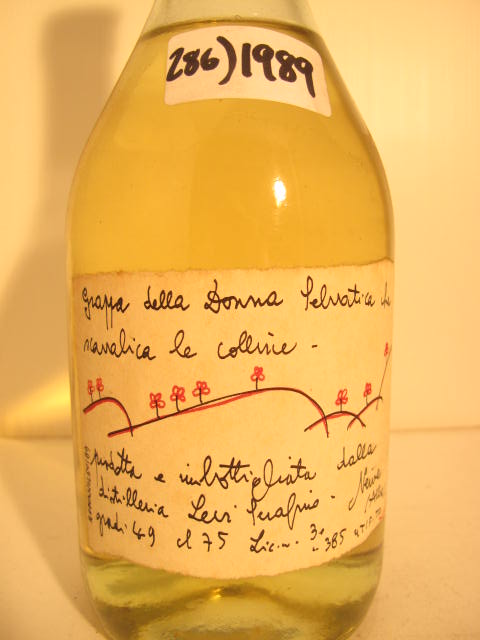 286) 1989
Grappa della Donna Selvatica che
scavalica le colline -
prodotta e imbottigliata dalla
distilleria Levi Serafino - Neive
gradi 49 cl 75 Lic. n. 385